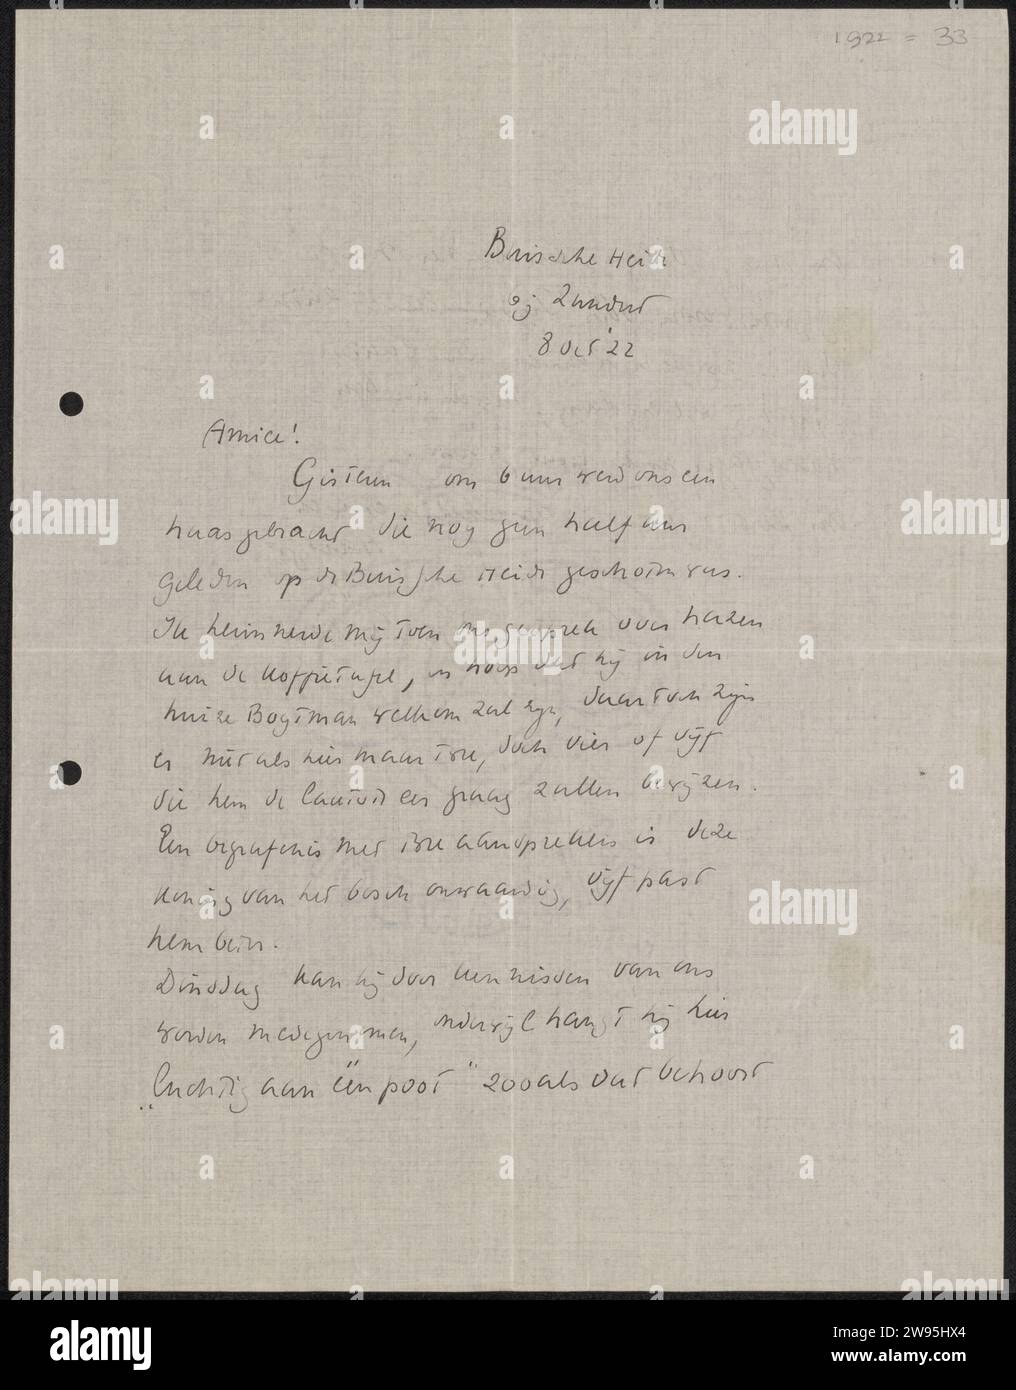 1922 = 33
Buissche Heide
bij Zundert
8 Oct '22
Amice!
Gisteren om 6 uur werd ons een
haas gebracht die nog geen half uur
geleden op de Buissche Heide geschoten was.
Ik herinnerde mij toen ons gesprek over hazen
aan de koffietafel, en hoop dat hij in den
huize Bogtman welkom zal zijn, daar toch zijn
er niet als hier maar twee, doch vier of vijf
die hem de laatste eer graag zullen bewijzen.
Een begrafenis met twee aansprekers is deze
koning van het bosch onwaardig, vijf past
hem beter.
Dinsdag kan hij door kennissen van ons
worden medegenomen, onderwijl hangt hij hier
"luchtig aan één poot" zooals dat behoort
alamy
alamy
alamy
alamy
alamy
alamy
alamy
alamy
alamy
Image ID: 2W95HX4
www.alamy.com